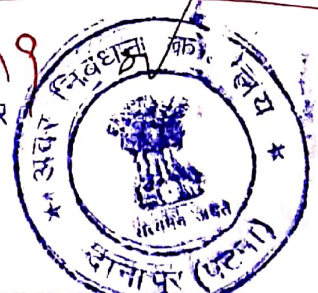 अवर निबंधन कार्यालय
सत्यमेव जयते
दानापुर (पटना)